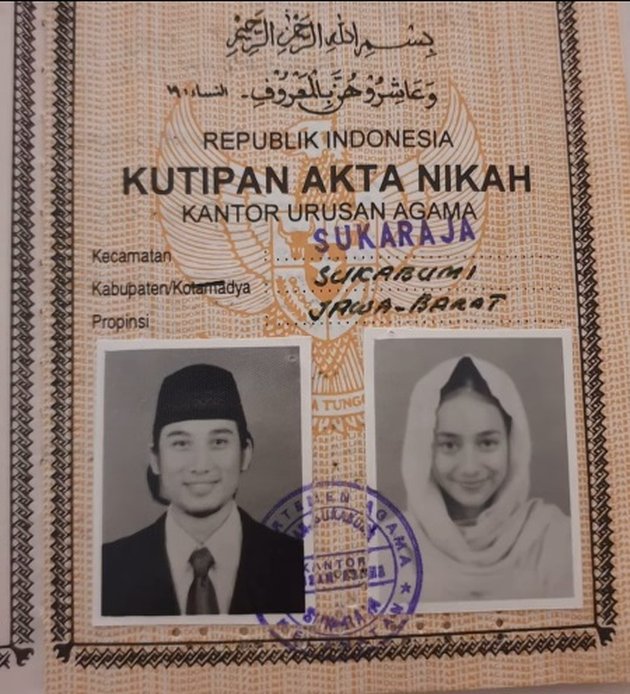 بِسْمِ اللهِ الرَّحْمٰنِ الرَّحِيْمِ
وَعَاشِرُوْهُنَّ بِالْمَعْرُوْفِ - النساء ١٩٠
REPUBLIK INDONESIA
KUTIPAN AKTA NIKAH
KANTOR URUSAN AGAMA
SUKARAJA
Kecamatan :
Kabupaten/Kotamadya : SUKABUMI
Propinsi : JAWA-BARAT
M TUNG
RTEMEN AGAMA
KANTOR